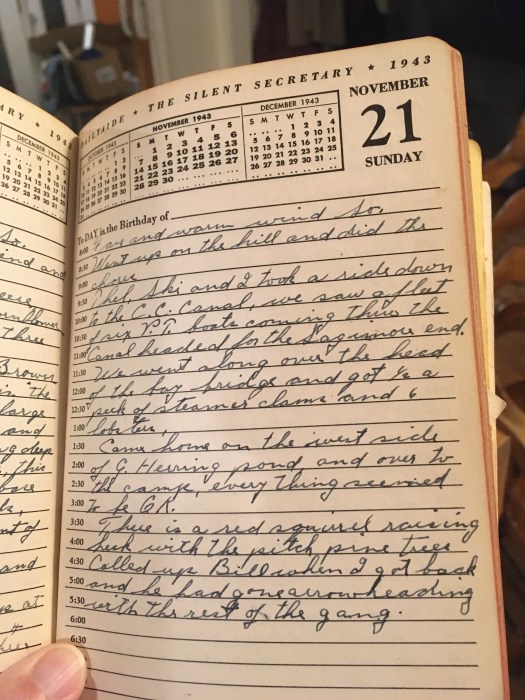 ARY ★ 194
DECEMBER 1943
So.
ind and
three
Brown
in the
large
and
g deep
this
nt of
and
up at
DAILYAIDE ★ THE SILENT SECRETARY ★ 1943
OCTOBER 1943
NOVEMBER 1943
S M T W T F S
1 2 3 4 5 6
7 8 9 10 11 12 13
14 15 16 17 18 19 20
21 22 23 24 25 26 27
28 29 30
DECEMBER 1943
S M T W T F S
1 2 3 4
5 6 7 8 9 10 11
12 13 14 15 16 17 18
19 20 21 22 23 24 25
26 27 28 29 30 31
NOVEMBER
21
SUNDAY
To-DAY is the Birthday of
8:00 Fair and warm wind So.
8:30 Went up on the hill and did the
9:00 chores
9:30 Phil, Ski and I took a ride down
10:00 to the C.C. Canal, we saw a fleet
10:30 of six P.T. boats coming thru the
11:00 Canal headed for the Sagamore end.
11:30 We went along over the head
12:00 of the bay bridge and got ½ a
12:30 peck of steamer clams and 6
1:00 lobster,
1:30 Came home on the west side
2:00 of G. Herring pond, and over to
2:30 the camp, everything seemed
3:00 to be O.K.
3:30 There is a red squirrel raising
4:00 heck with the pitch pine trees
4:30 Called up Bill when I got back
5:00 and he had gone arrowheading
5:30 with the rest of the gang.
6:00
6:30